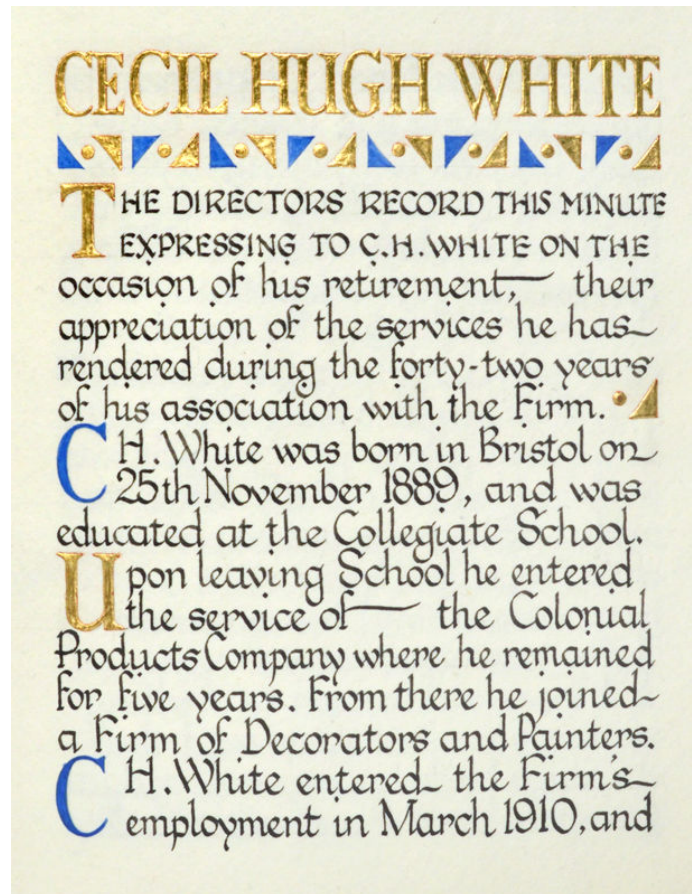 CECIL HUGH WHITE
THE DIRECTORS RECORD THIS MINUTE
EXPRESSING TO C.H.WHITE ON THE
occasion of his retirement, their
appreciation of the services he has
rendered during the forty-two years
of his association with the Firm.
C H.White was born in Bristol on
25th November 1889, and was
educated at the Collegiate School.
Upon leaving School he entered
the service of the Colonial
Products Company where he remained
for five years. From there he joined
a Firm of Decorators and Painters.
C H.White entered the Firm's
employment in March 1910, and